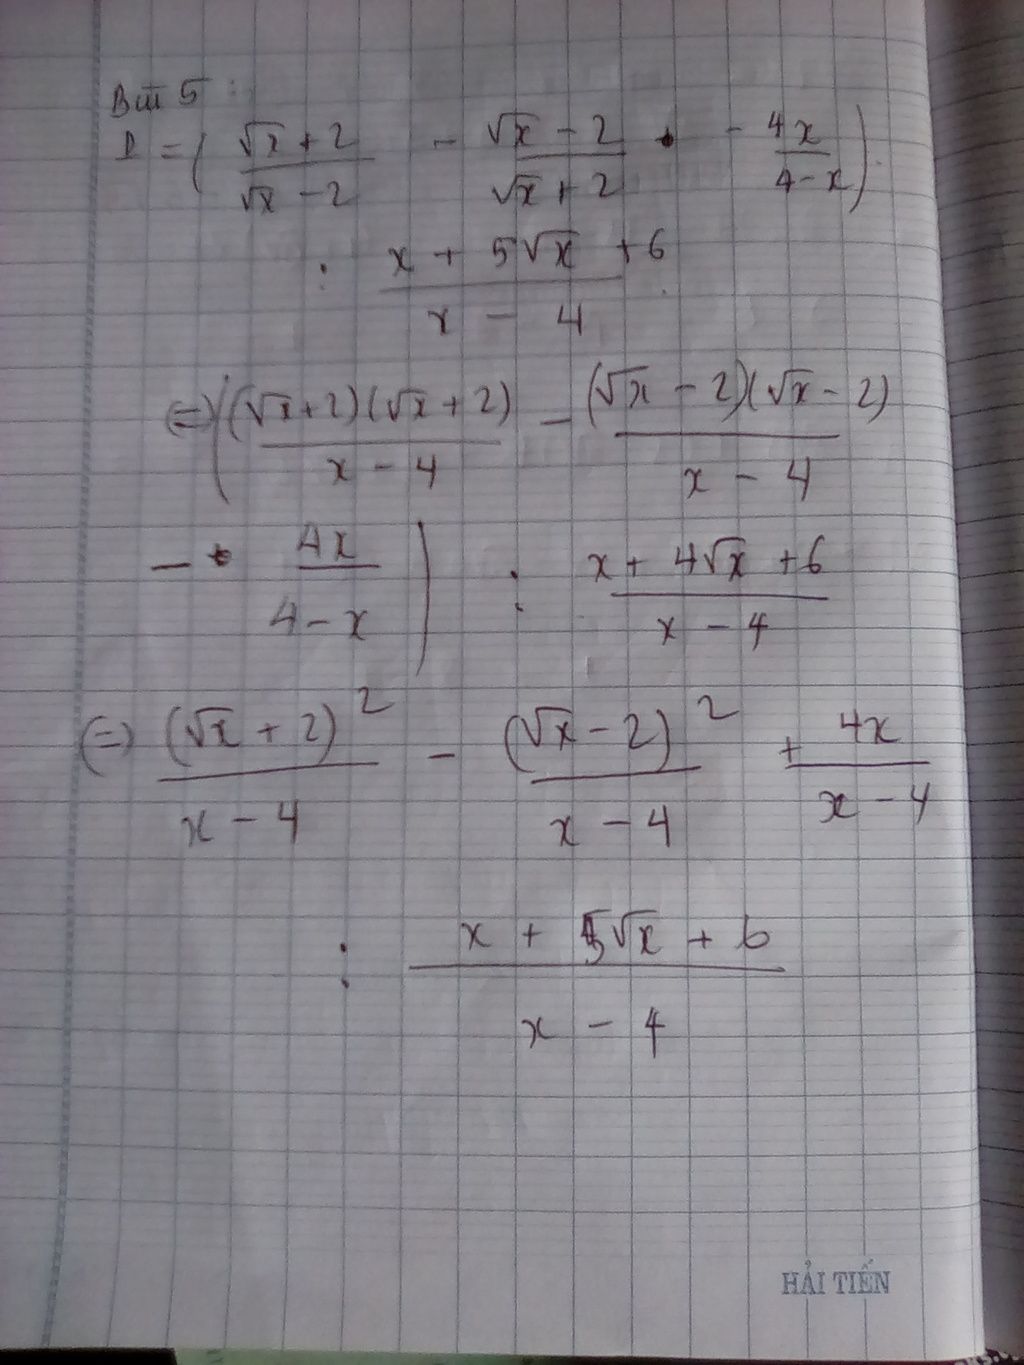 Bài 5 :
D = ( (√x + 2)/(√x - 2) - (√x - 2)/(√x + 2) - 4x/(4 - x) )
: (x + 5√x + 6)/(x - 4)
(=) ( ((√x + 2)(√x + 2))/(x - 4) - ((√x - 2)(√x - 2))/(x - 4)
- 4x/(4 - x) ) : (x + 4√x + 6)/(x - 4)
(=) (√x + 2)²/(x - 4) - (√x - 2)²/(x - 4) + 4x/(x - 4)
: (x + 5√x + 6)/(x - 4)
HẢI TIẾN